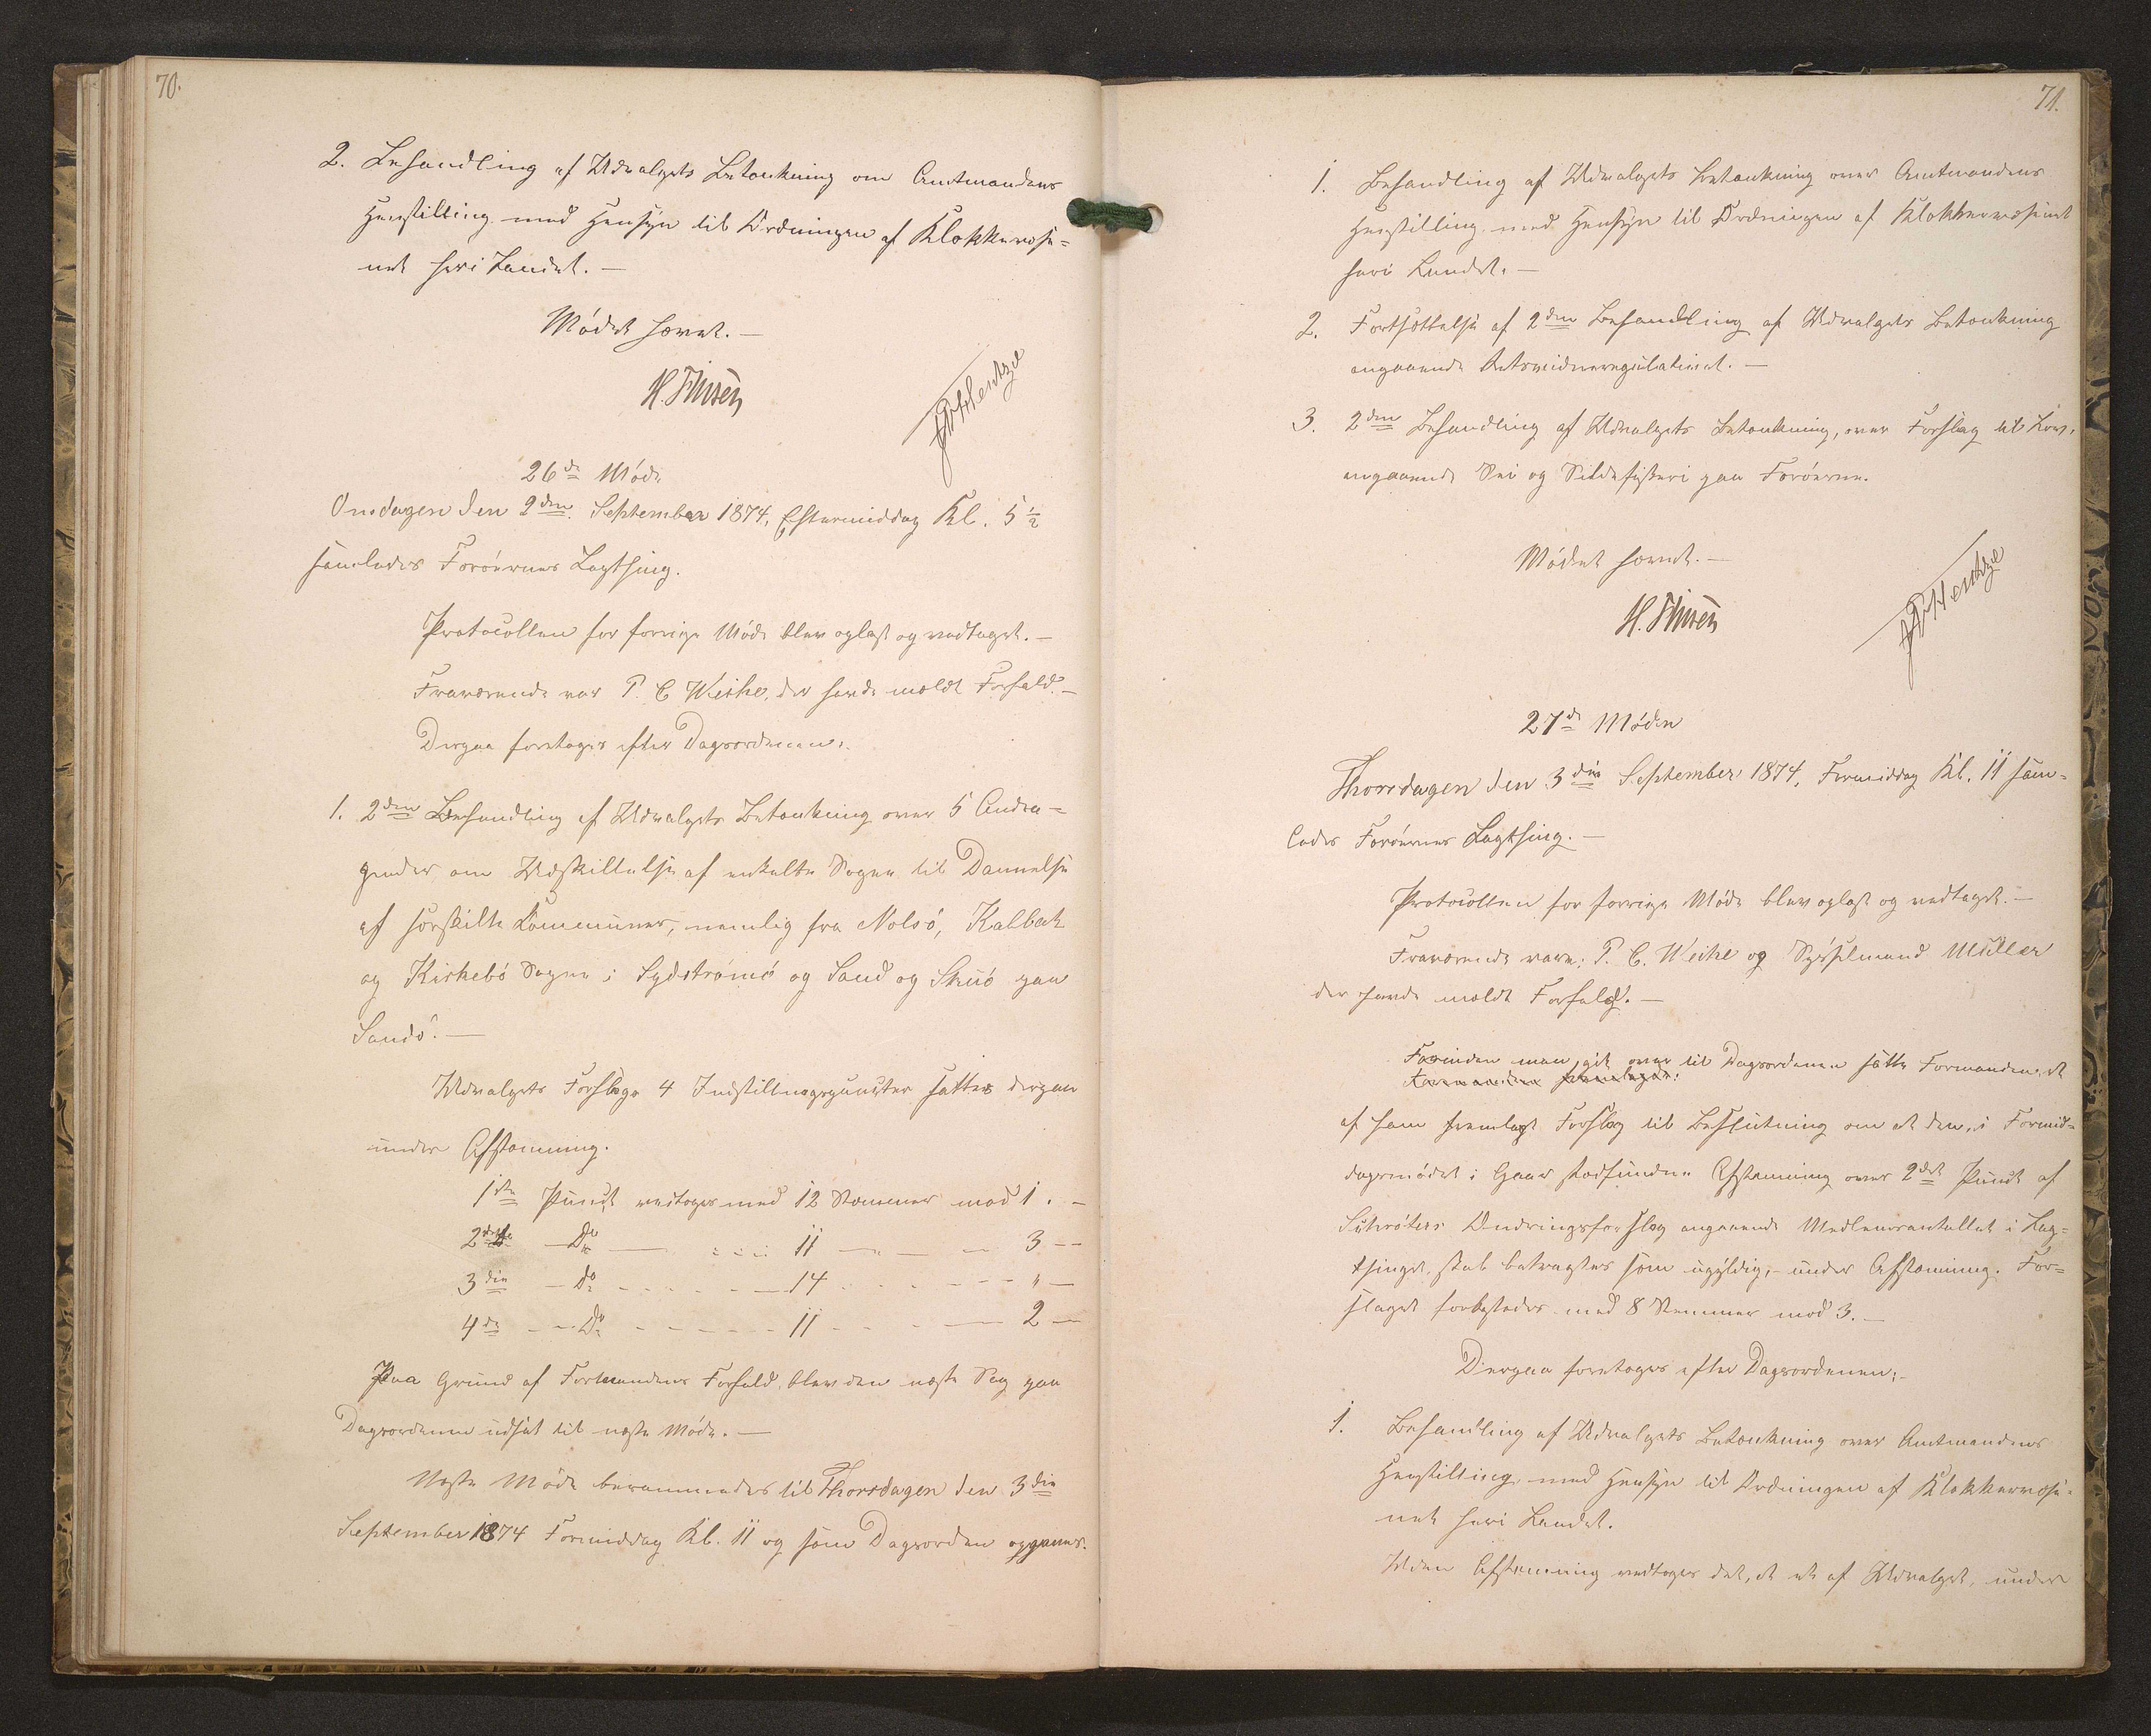 70.
2. Behandling af Udvalgets Betænkning om Amtmandens
Henstilling med Hensyn til Ordningen af Klokkervæse-
net her i Landet. —
Mødet hævet. —
26de Møde
Onsdagen den 2den September 1874, Eftermiddag Kl. 5 ½
samledes Færøernes Lagthing.
Protocollen for forrige Møde blev oplæst og vedtaget. —
Fraværende var P. C Weihe, der havde meldt Forfald. —
Derpaa foretoges efter Dagsordenen:
1. 2den Behandling af Udvalgets Betænkning over 5 Andra-
gender om Udskillelse af enkelte Sogne til Dannelse
af særskilte Kommuner, nemlig fra Nolsø, Kalbak
og Kirkebø Sogne i Sydstrømø og Sand og Skuø paa
Sandø. —
Udvalgets Forslags 4 Indstillingspuncter sattes derpaa
under Afstemning.
1ste Punct vedtoges med 12 Stemmer mod 1. —
2det — Do — 11 — — 3 —
3die — Do — 14 — — " —
4de — Do — 11 — — 2 —
Paa Grund af Formandens Forfald, blev den næste Sag paa
Dagsordenen udsat til næste Møde. —
Næste Møde berammedes til Thorsdagen den 3die
September 1874 Formiddag Kl. 11 og som Dagsorden opgaves.
71.
1. Behandling af Udvalgets Betænkning over Amtmandens
Henstilling med Hensyn til Ordningen af Klokkervæsenet
her i Landet. —
2. Fortsættelse af 2den Behandling af Udvalgets Betænkning
angaaende Retsvidneregulativet. —
3. 2den Behandling af Udvalgets Betænkning, over Forslag til Lov,
angaaende Sei og Sildefiskeri paa Færøerne.
Mødet hævet. —
27de Møde
Thorsdagen den 3die September 1874, Formiddag Kl. 11 sam-
ledes Færøernes Lagthing. —
Protocollen for forrige Møde blev oplæst og vedtaget. —
Fraværende vare: P. C. Weihe og Sysselmand Müller
der havde meldt Forfald. —
Forinden man gik over til Dagsordenen satte Formanden et
af ham fremlagt Forslag til Beslutning om at den, i Formid-
dagsmødet i Gaar stedfundne Afstemning over 2det Punct af
Schrøters Ændringsforslag angaaende Medlemsantallet i Lag-
thinget, skal betragtes som ugyldig, under Afstemning. For-
slaget forkastedes med 8 Stemmer mod 3. —
Derpaa foretoges efter Dagsordenen:
1. Behandling af Udvalgets Betænkning over Amtmandens
Henstilling med Hensyn til Ordningen af Klokkervæse-
net her i Landet.
Uden Afstemning vedtoges det, at et af Udvalget, under